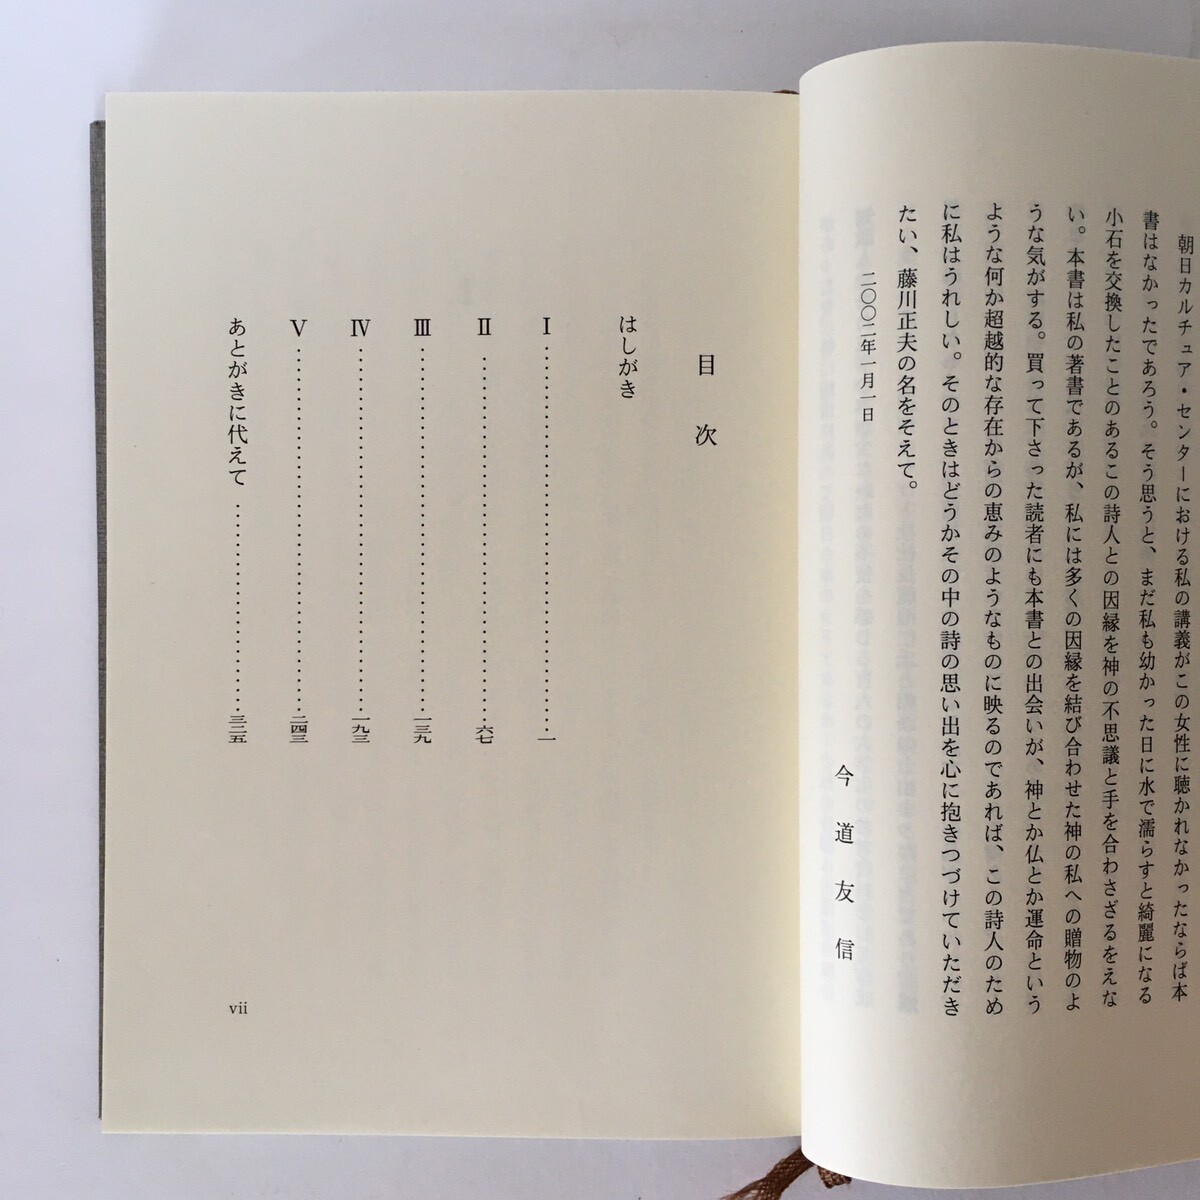 朝日カルチュア・センターにおける私の講義がこの女性に聴かれなかったならば本
書はなかったであろう。そう思うと、まだ私も幼かった日に水で濡らすと綺麗になる
小石を交換したことのあるこの詩人との因縁を神の不思議と手を合わさざるをえな
い。本書は私の著書であるが、私には多くの因縁を結び合わせた神の私への贈物のよ
うな気がする。買って下さった読者にも本書との出会いが、神とか仏とか運命という
ような何か超越的な存在からの恵みのようなものに映るのであれば、この詩人のため
に私はうれしい。そのときはどうかその中の詩の思い出を心に抱きつづけていただき
たい、藤川正夫の名をそえて。
二〇〇二年一月一日
今道友信
目次
はしがき
Ⅰ……………………………………一
Ⅱ……………………………………六七
Ⅲ……………………………………一三九
Ⅳ……………………………………一九三
Ⅴ……………………………………二四三
あとがきに代えて……………………三二五
vii